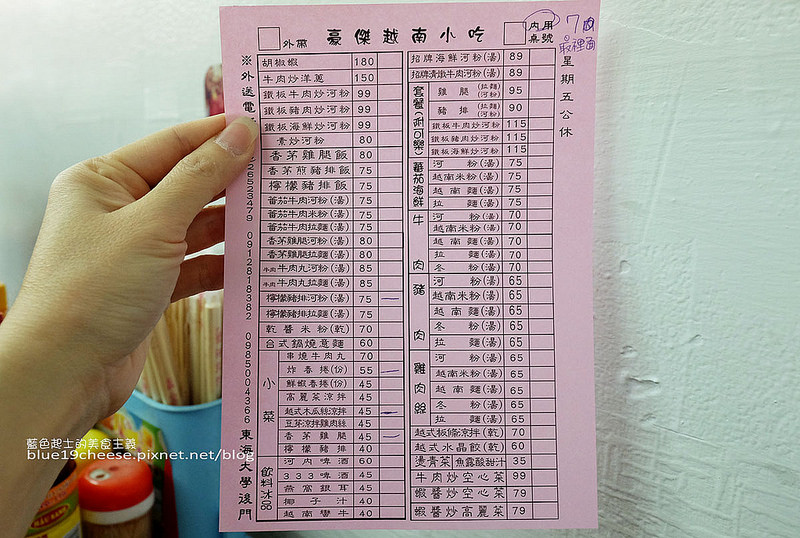 外帶
豪傑越南小吃
內用
桌號
7
最裡面
星期五公休
※外送電
0912818382
0985004366
東海大學後門
胡椒蝦 180
牛肉炒洋蔥 150
鐵板牛肉炒河粉 99
鐵板豬肉炒河粉 99
鐵板海鮮炒河粉 99
素炒河粉 80
香茅雞腿飯 80
香茅煎豬排飯 75
檸檬豬排飯 75
蕃茄牛肉河粉(湯) 75
蕃茄牛肉米粉(湯) 75
蕃茄牛肉拉麵(湯) 75
香茅雞腿河粉(湯) 80
香茅雞腿拉麵(湯) 80
牛肉牛肉丸河粉(湯) 85
牛肉牛肉丸拉麵(湯) 85
檸檬豬排河粉(湯) 75
檸檬豬排拉麵(湯) 75
乾醬米粉(乾) 70
台式鍋燒意麵 60
小菜
串燒牛肉丸 70
炸春捲(份) 55
鮮蝦春捲(份) 45
高麗菜涼拌 45
越式木瓜絲涼拌 45
豆芽涼拌雞肉絲 45
香茅雞腿 45
檸檬豬排 40
飲料冰品
河內啤酒 60
333啤酒 45
燕窩銀耳 45
椰子汁 40
越南彎牛 40
招牌海鮮河粉(湯) 89
招牌清燉牛肉河粉(湯) 89
套餐(附可樂)
雞腿(拉麵)(河粉) 95
豬排(拉麵)(河粉) 90
鐵板牛肉炒河粉 115
鐵板豬肉炒河粉 115
鐵板海鮮炒河粉 115
蕃茄海鮮
河粉(湯) 75
越南米粉(湯) 75
越南麵(湯) 75
拉麵(湯) 75
牛肉
河粉(湯) 70
越南米粉(湯) 70
越南麵(湯) 70
拉麵(湯) 70
冬粉(湯) 70
豬肉
河粉(湯) 65
越南米粉(湯) 65
越南麵(湯) 65
冬粉(湯) 65
拉麵(湯) 65
雞肉絲
河粉(湯) 65
越南米粉(湯) 65
越南麵(湯) 65
冬粉(湯) 65
拉麵(湯) 65
越式板條涼拌(乾) 70
越式水晶餃(乾) 60
燙青菜 魚露酸甜汁 35
牛肉炒空心菜 99
蝦醬炒空心菜 79
蝦醬炒高麗菜 79
藍色起士的美食主義
blue19cheese.pixnet.net/blog